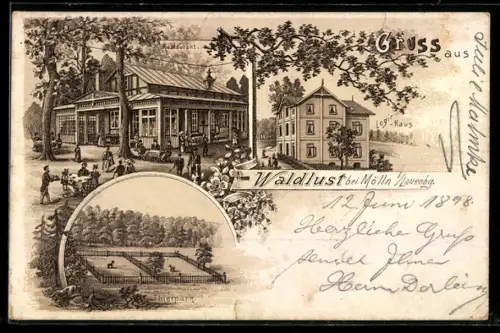 Restaurant.
Gruss aus
Logir-Haus
Waldlust bei Mölln i/Lauenbg.
12 Juni 1898.
Herzliche Gruß
sendet Ihnen
Thierpark.